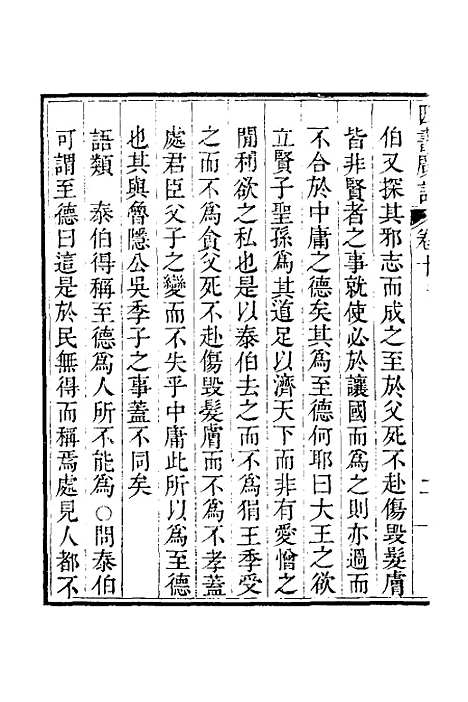 伯又探其邪志而成之至於父死不赴傷毀髮膚
皆非賢者之事就使必於讓國而為之則亦過而
不合於中庸之德矣其為至德何耶曰大王之欲
立賢子聖孫為其道足以濟天下而非有愛憎之
閒利欲之私也是以泰伯去之而不為狷王季受
之而不為貪父死不赴傷毀髮膚而不為不孝蓋
處君臣父子之變而不失乎中庸此所以為至德
也其與魯隱公吳季子之事蓋不同矣
語類　泰伯得稱至德為人所不能為○問泰伯
可謂至德曰這是於民無得而稱焉處見人都不